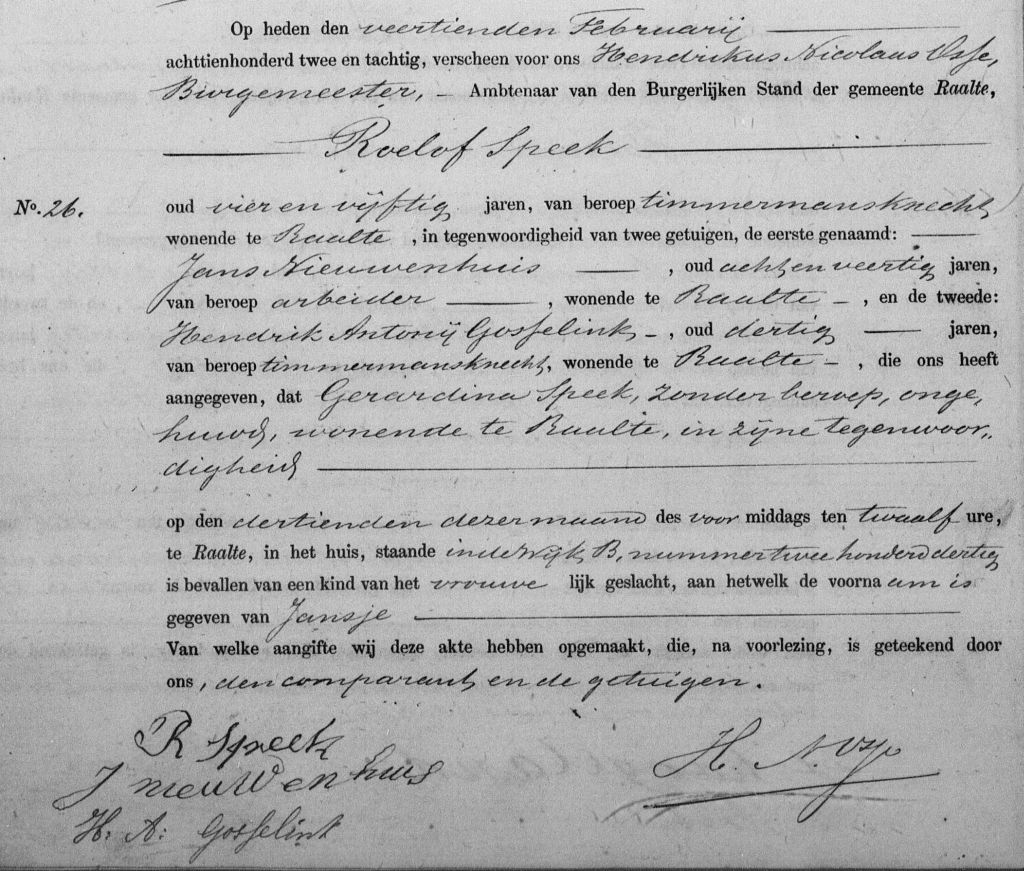 Op heden den veertienden Februarij
achttienhonderd twee en tachtig, verscheen voor ons Hendrikus Nicolaus Osse,
Burgemeester, Ambtenaar van den Burgerlijken Stand der gemeente Raalte,
Roelof Speek
No. 26. oud vier en vijftig jaren, van beroep timmermansknecht
wonende te Raalte, in tegenwoordigheid van twee getuigen, de eerste genaamd:
Jans Nieuwenhuis, oud acht en veertig jaren,
van beroep arbeider, wonende te Raalte, en de tweede:
Hendrik Antonij Gosselink, oud dertig jaren,
van beroep timmermansknecht, wonende te Raalte, die ons heeft
aangegeven, dat Gerardina Speek, zonder beroep, onge,
huwd, wonende te Raalte, in zijne tegenwoor,,
digheid
op den dertienden dezer maand des voor middags ten twaalf ure,
te Raalte, in het huis, staande in de wijk B, nummer twee honderd dertig
is bevallen van een kind van het vrouwe lijk geslacht, aan hetwelk de voorna am is
gegeven van Jansje
Van welke aangifte wij deze akte hebben opgemaakt, die, na voorlezing, is geteekend door
ons, den comparant, en de getuigen.
R Speek
J nieuWenhuis
H. A: Gosselink